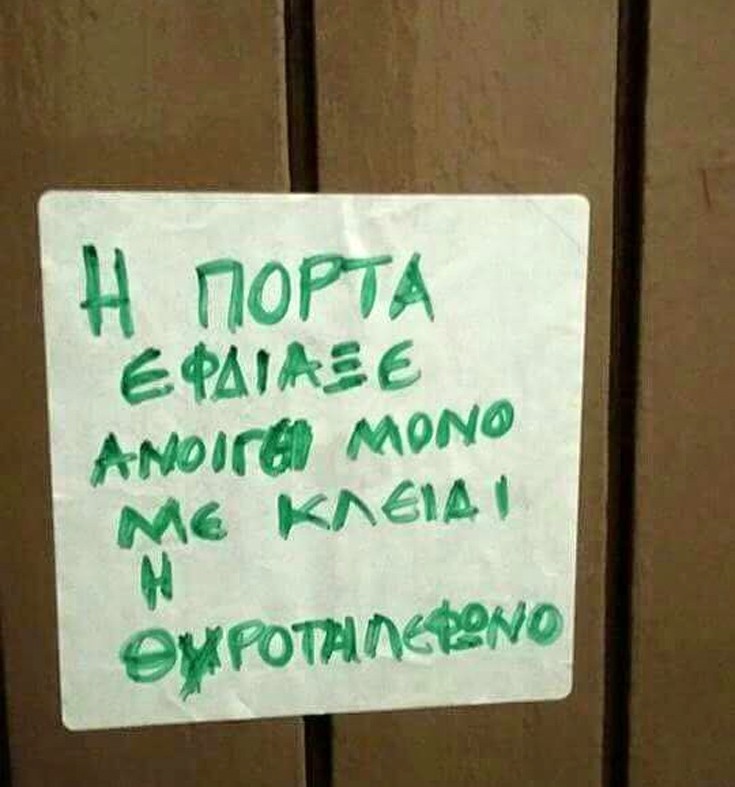 Η ΠΟΡΤΑ
ΕΦΔΙΑΞΕ
ΑΝΟΙΓΕΙ ΜΟΝΟ
ΜΕ ΚΛΕΙΔΙ
Η
ΘΥΡΟΤΗΛΕΦΩΝΟ